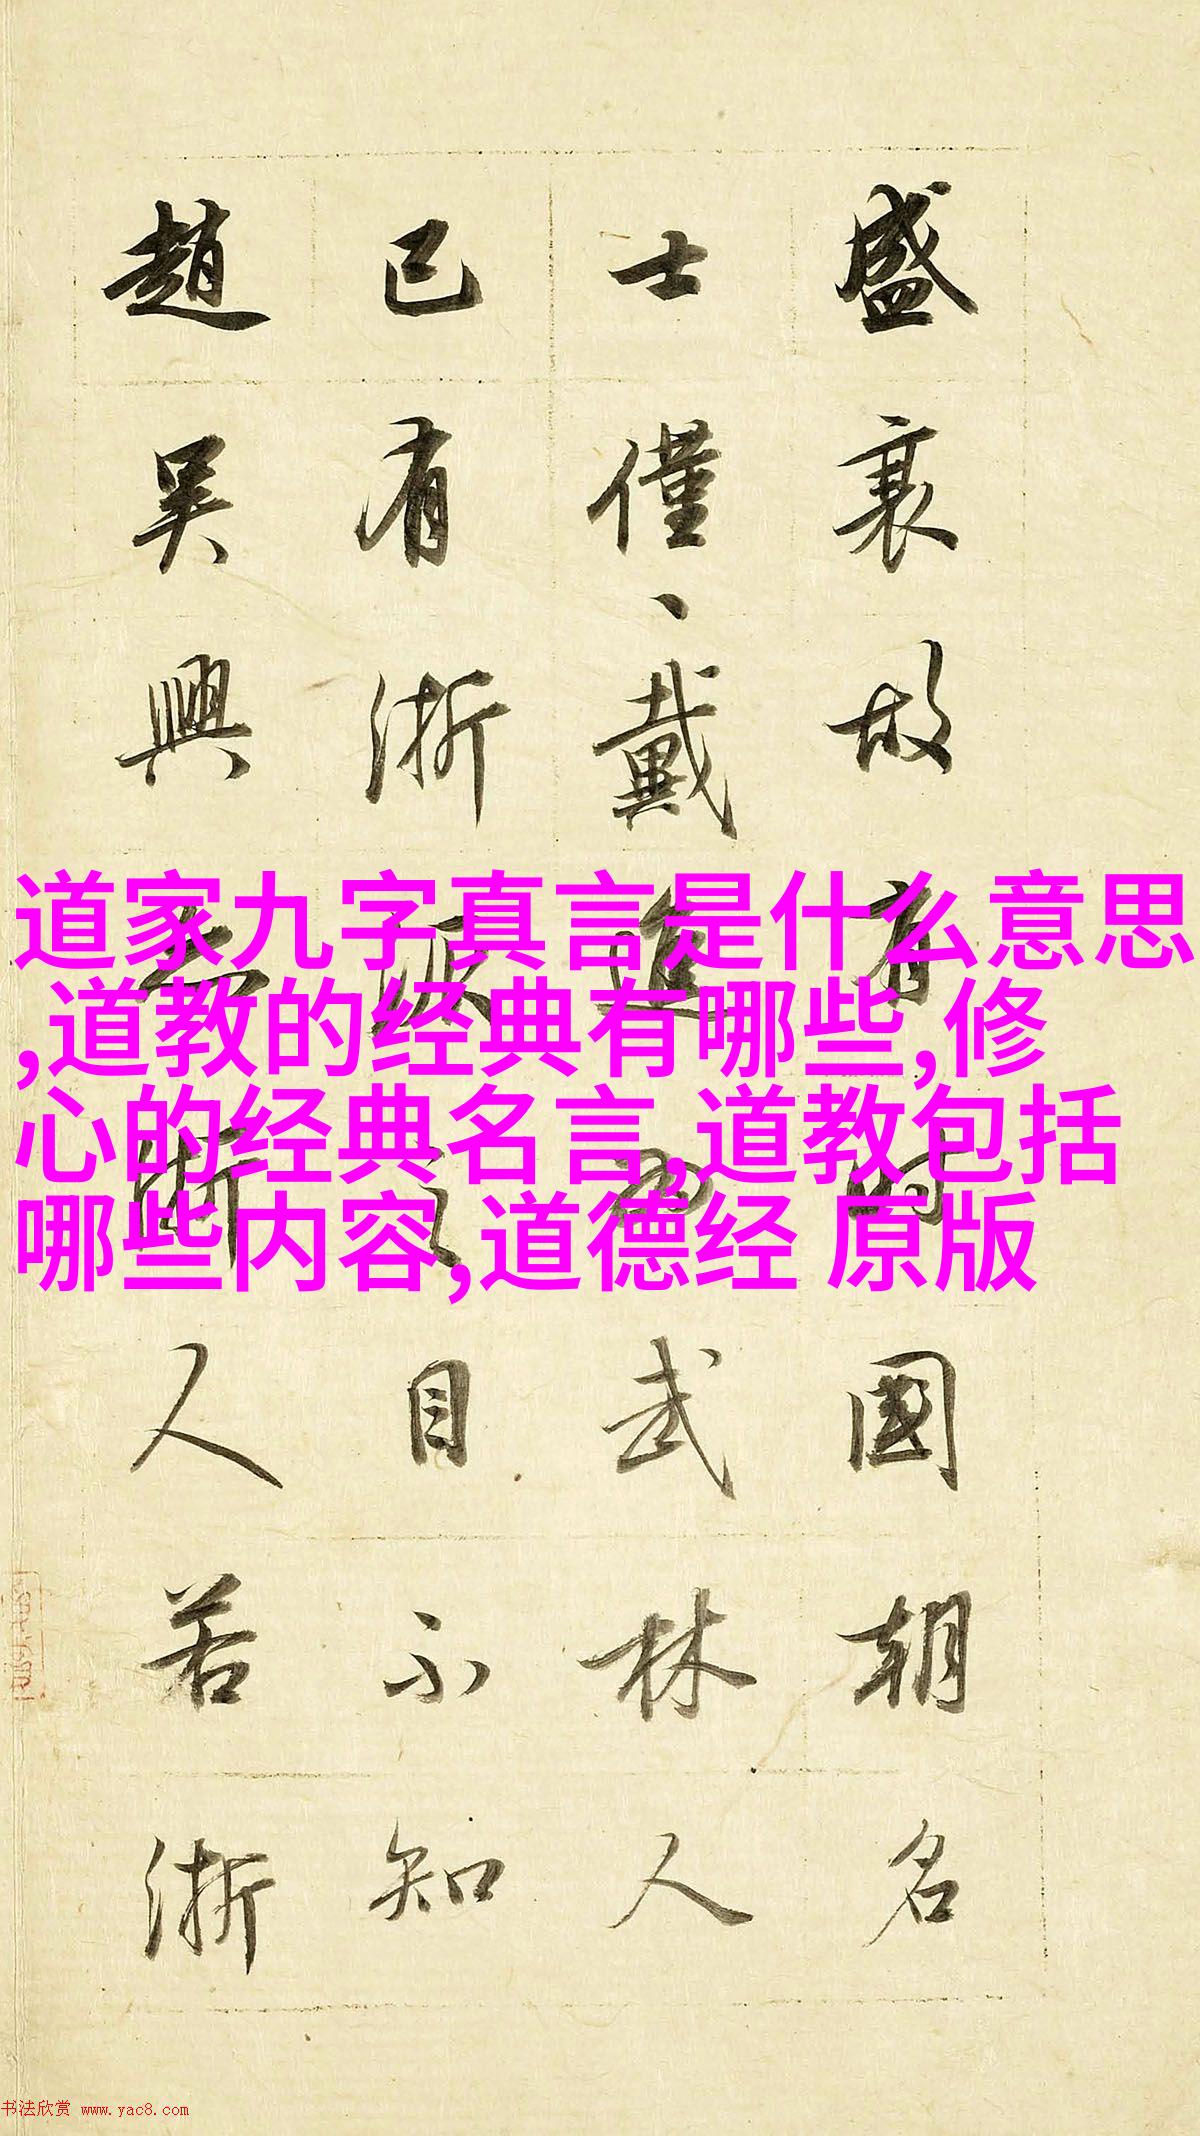 盛衰故有時國朝名
士僅、戴進為武林人
已有浙派之目不知
趙吳興亦浙人若浙
道家九字真言是什么意思
,道教的经典有哪些,修
心的经典名言,道教包括
哪些内容,道德经 原版
书法欣赏 www.yac8.com